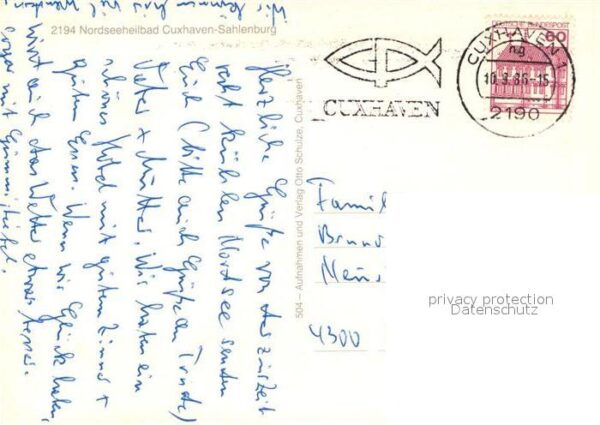 2194 Nordseeheilbad Cuxhaven-Sahlenburg
DEUTSCHE BUNDESPOST
60
CUXHAVEN 1
ng
10.3.86-15
2190
CUXHAVEN
504 – Aufnahmen und Verlag Otto Schulze, Cuxhaven
Herzliche Grüße von der zurzeit
recht kühlen Nordsee senden
Euch (bitte auch Grüße an Trude)
Vater + Mutter. Wir haben ein
schönes Hotel mit gutem Zimmer +
gutem Essen. Wenn wir Glück haben,
wird auch das Wetter etwas
sogar mit Gummistiefel.
Wir können
Famil
Brun
4300
privacy protection
Datenschutz